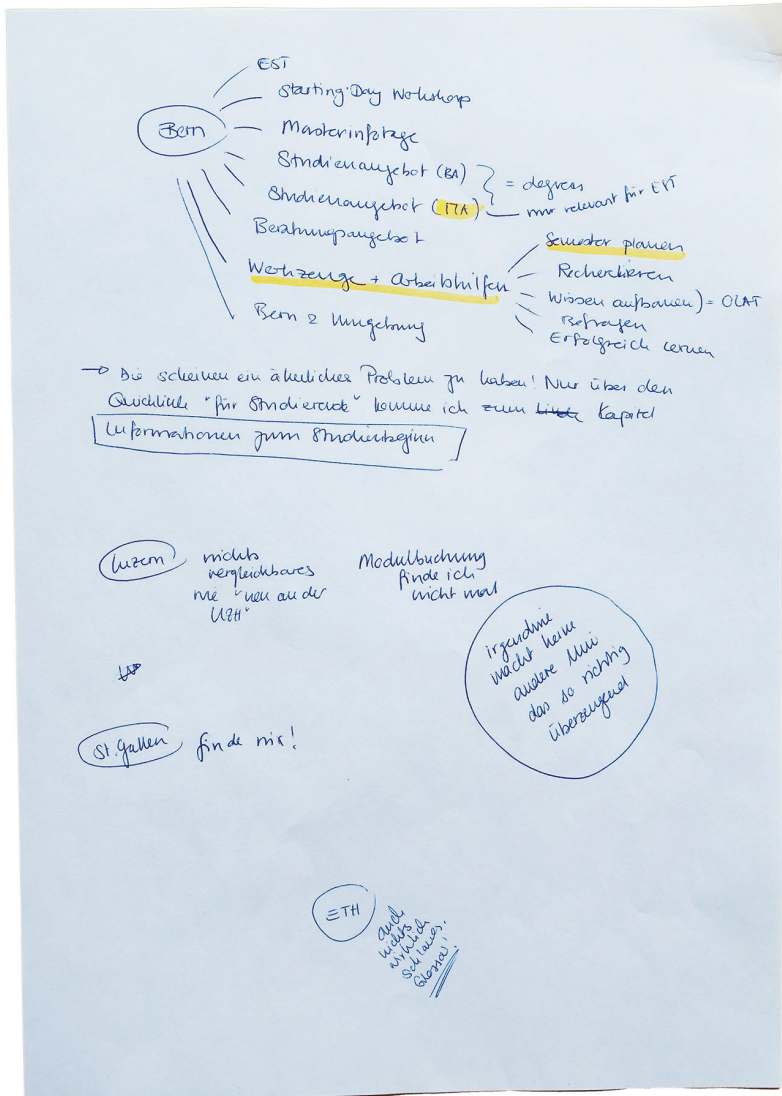 EST
Starting-Day Workshop
Bern
Masterinfotage
Studienangebot (BA)
= degrees
Studienangebot (MA)
nur relevant für EST
Beratungsangebot
Werkzeuge + Arbeitshilfen
Semester planen
Recherchieren
Wissen aufbauen) = OLAT
Befragen
Erfolgreich lernen
Bern & Umgebung
→ Die scheinen ein ähnliches Problem zu haben! Nur über den
Quicklink "für Studierende" komme ich zum Kapitel
Informationen zum Studienbeginn
Luzern
nichts
vergleichbares
wie "neu an der
UZH"
Modulbuchung
finde ich
nicht mal
irgendwie
macht keine
andere Uni
das so richtig
überzeugend
St. Gallen
finde nix!
ETH
auch
nichts
wirklich
schlaues.
Glossar!